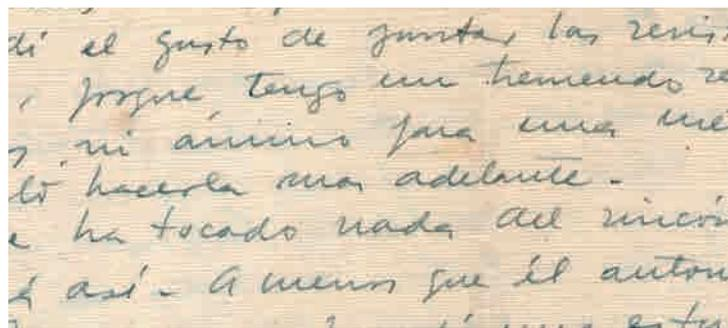 dí el gusto de juntar las revis
, porque tengo un tremendo re
s, ni ánimo para una me
hacerla mas adelante.
e ha tocado nada del rincó
á así. A menos que él auton